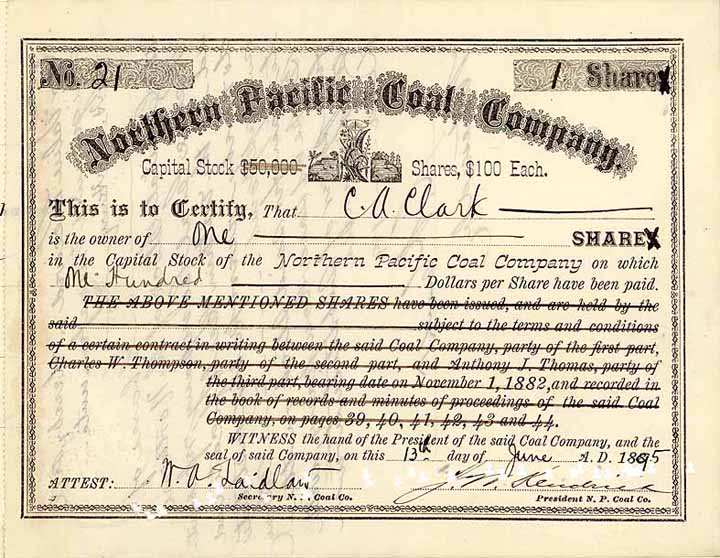 No. 21 1 Shares
Northern Pacific Coal Company.
Capital Stock $50,000- Shares, $100 Each.
This is to Certify, That C. A. Clark
is the owner of One SHARES
in the Capital Stock of the Northern Pacific Coal Company on which
One Hundred Dollars per Share have been paid.
THE ABOVE MENTIONED SHARES have been issued, and are held by the
said subject to the terms and conditions
of a certain contract in writing between the said Coal Company, party of the first part,
Charles W. Thompson, party of the second part, and Anthony J. Thomas, party of
the third part, bearing date on November 1, 1882, and recorded in
the book of records and minutes of proceedings of the said Coal
Company, on pages 39, 40, 41, 42, 43 and 44.
WITNESS the hand of the President of the said Coal Company, and the
seal of said Company, on this 13th day of June A. D. 1895
ATTEST: W. A. Laidlaw J. W. Kendrick
Secretary N. P. Coal Co. President N. P. Coal Co.